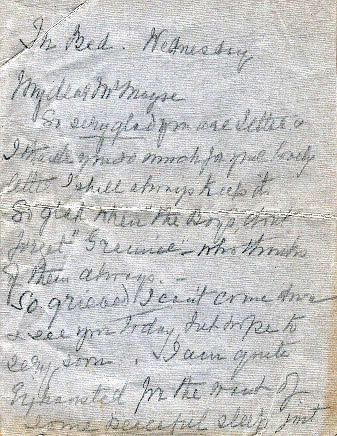 In Bed. Wednesday
My dear Mr Mayse
So very glad you are better &
I thank you so much for your lovely
letter I shall always keep it.
So glad when "the Boys don't
forget" - who thinks
of them always. -
So grieved I can't come down
& see you today but hope to
very soon. I am quite
Exhausted for the want of
some peaceful sleep just